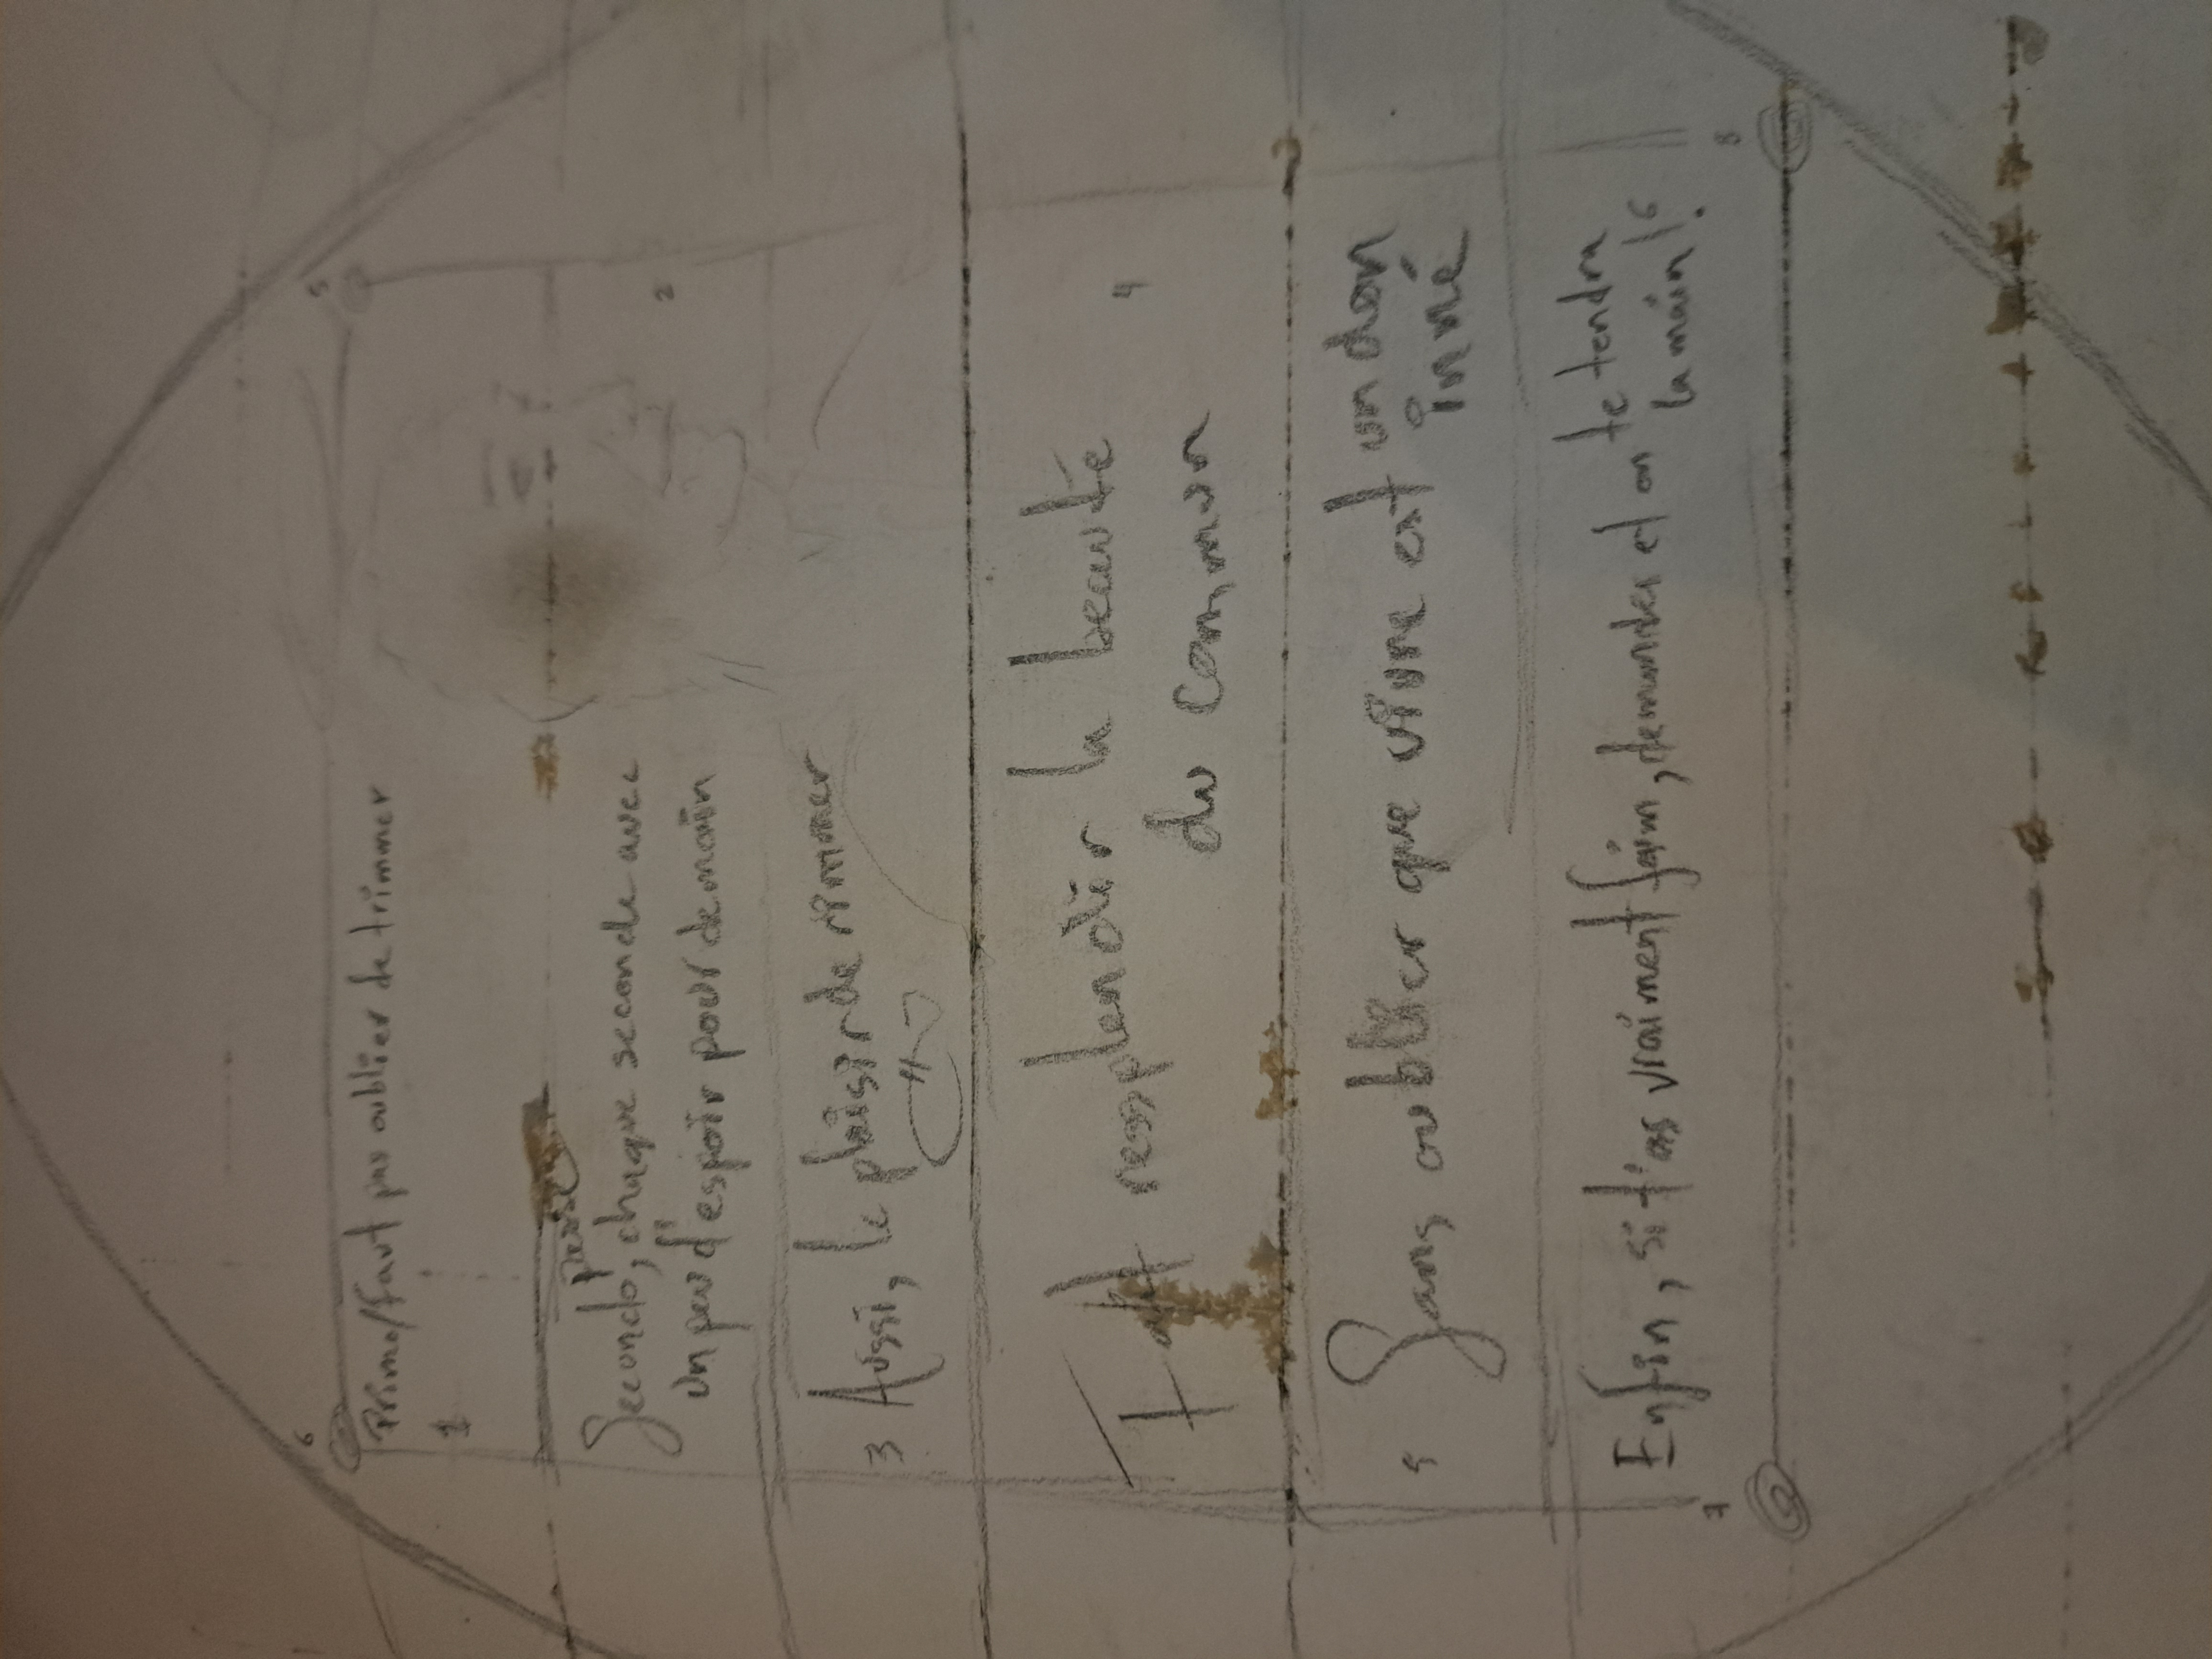 6
5
Primo, Faut pas oublier de trimmer
1
pense
Secondo, chaque seconde avec
un peu d'espoir pour demain
2
3 Aussi, le plaisir de rimmer
Fait resplendir la beauté
du commun
4
5 Sans oublier que vivre est un don
inné
Enfin, si t'as vraiment faim, demandes et on te tendra
la main! 6
7
8